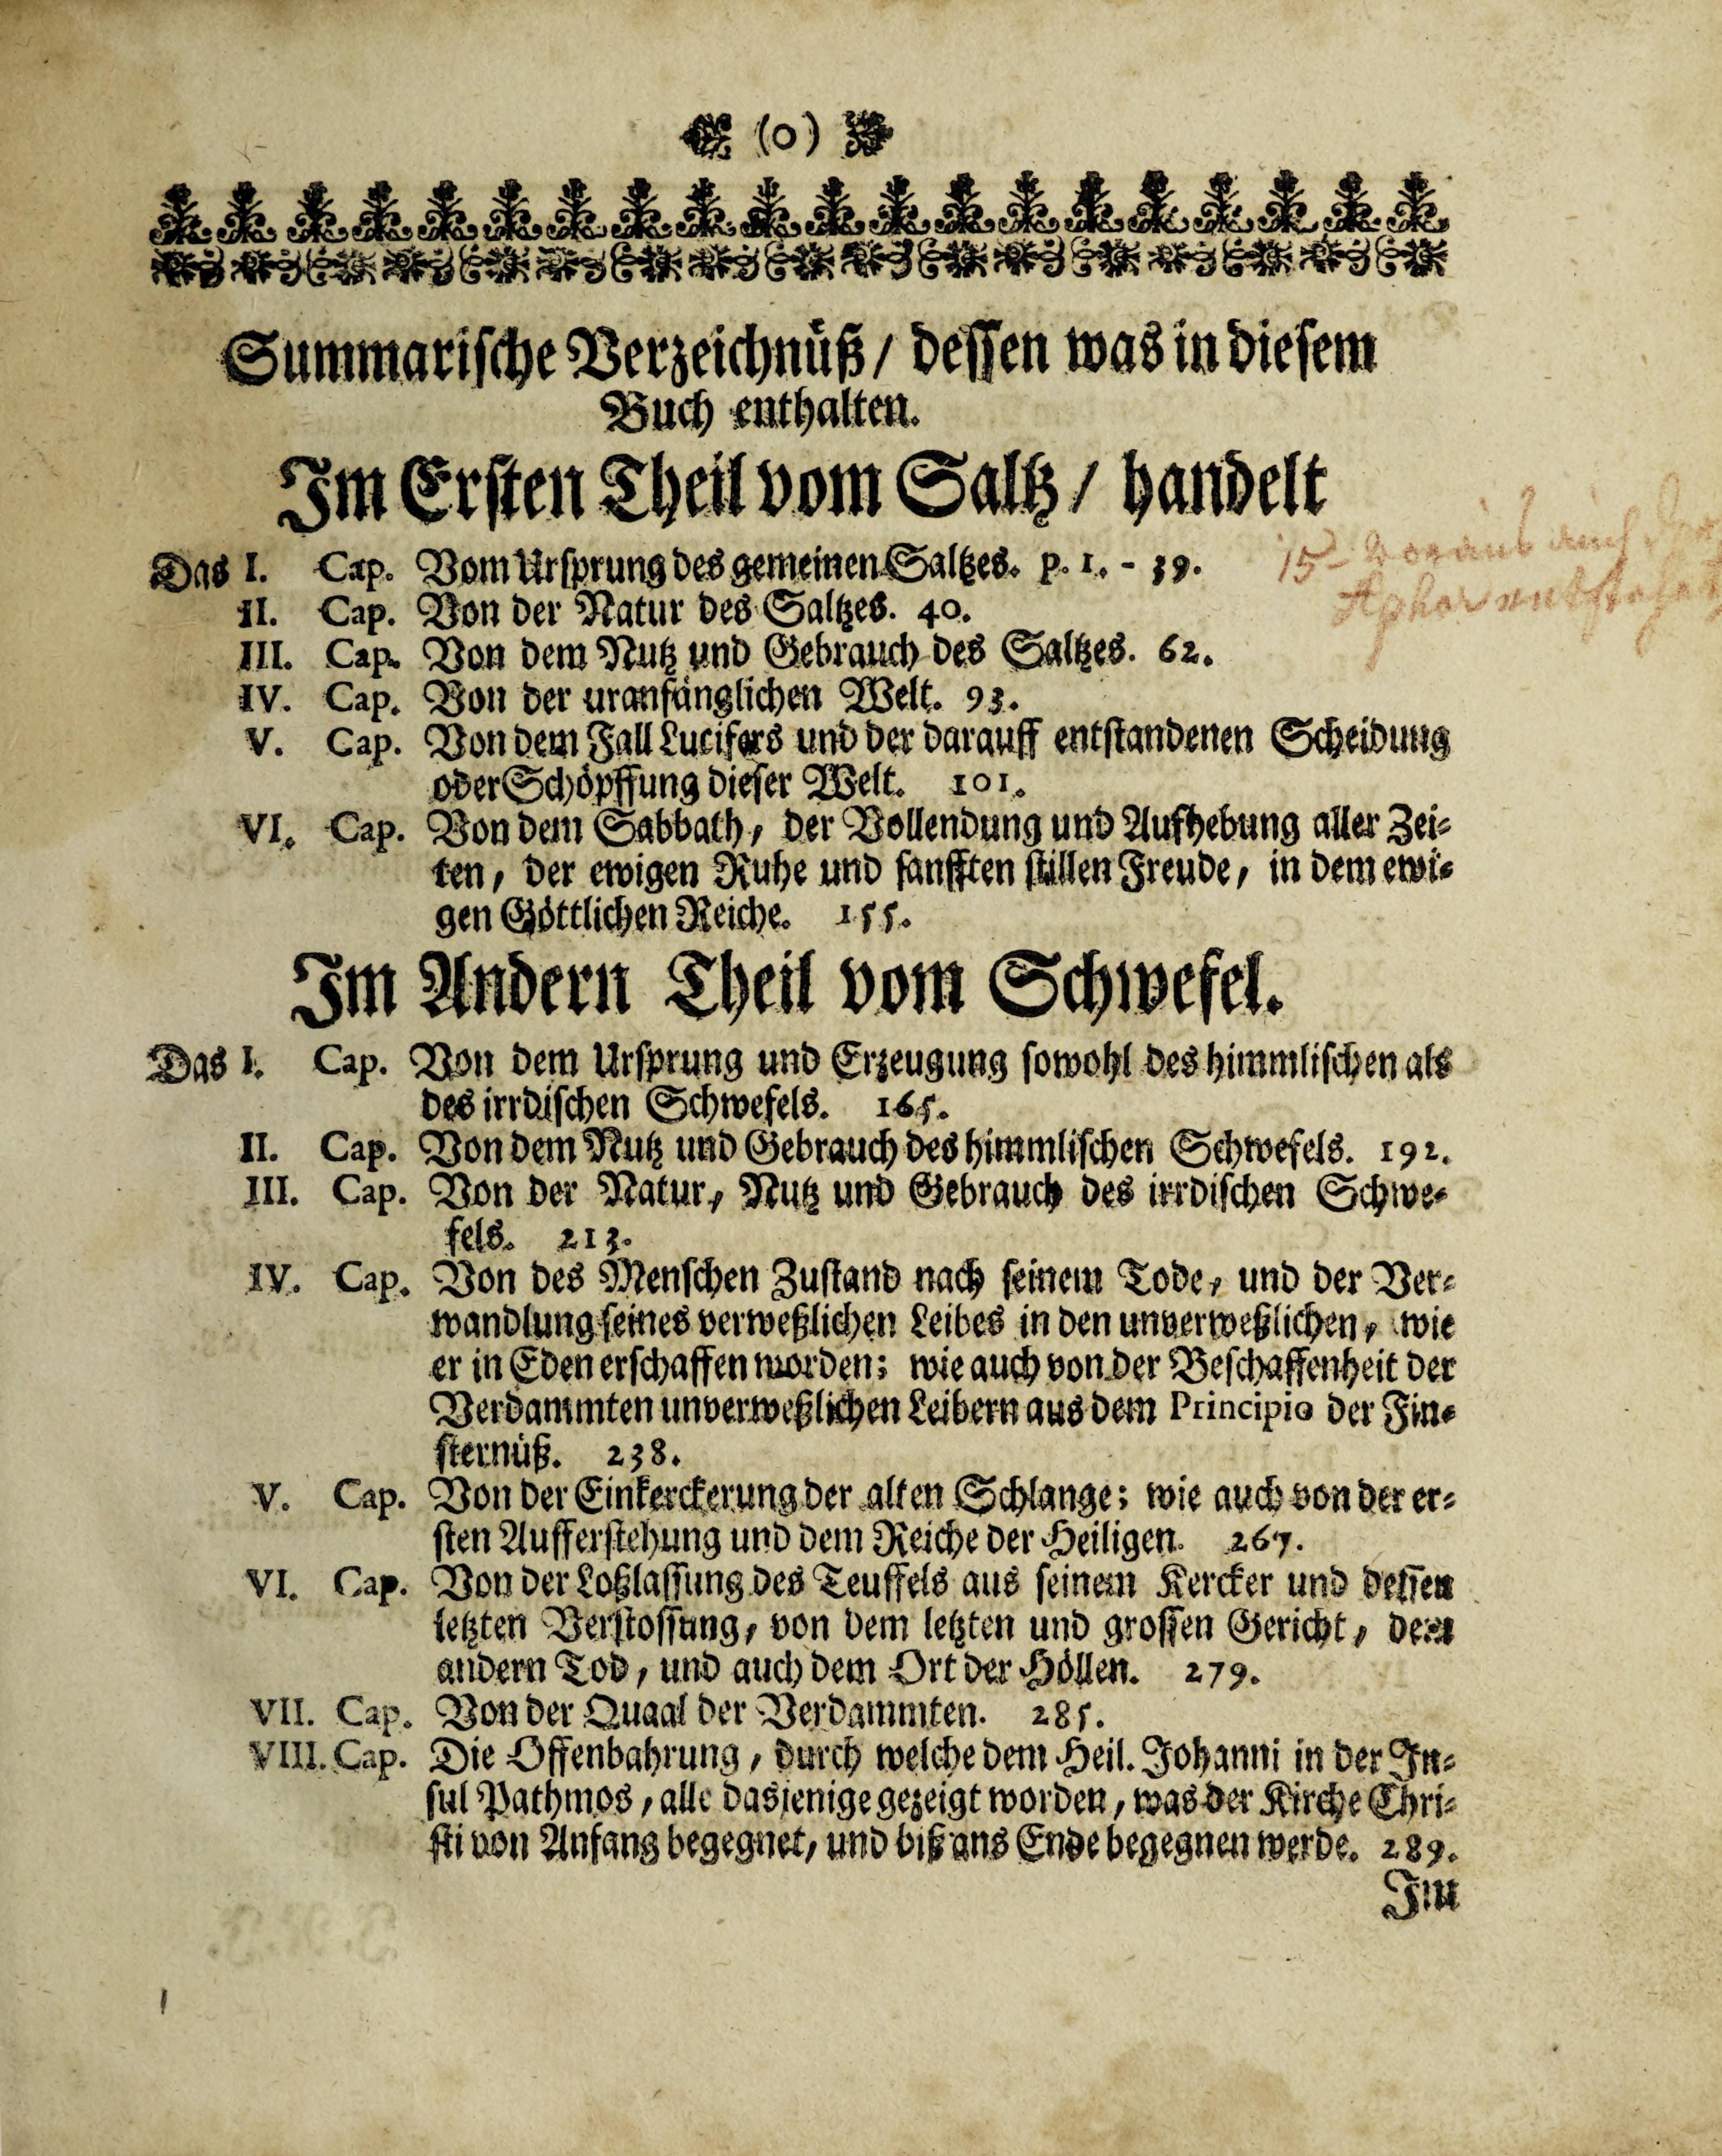 (0)
Summarische Verzeichnüß / dessen was in diesem
Buch enthalten.
Im Ersten Theil vom Saltz / handelt
Das I. Cap. Vom Ursprung des gemeinen Saltzes. p. 1. - 39.
II. Cap. Von der Natur des Saltzes. 40.
III. Cap. Von dem Nutz und Gebrauch des Saltzes. 62.
IV. Cap. Von der uranfänglichen Welt. 93.
V. Cap. Von dem Fall Lucifers und der darauff entstandenen Scheidung
oder Schöpffung dieser Welt. 101.
VI. Cap. Von dem Sabbath, der Vollendung und Aufhebung aller Zei-
ten, der ewigen Ruhe und sanfften stillen Freude, in dem ewi-
gen Göttlichen Reiche. 155.
Im Andern Theil vom Schwefel.
Das I. Cap. Von dem Ursprung und Erzeugung sowohl des himmlischen als
des irrdischen Schwefels. 165.
II. Cap. Von dem Nutz und Gebrauch des himmlischen Schwefels. 192.
III. Cap. Von der Natur, Nutz und Gebrauch des irrdischen Schwe-
fels. 213.
IV. Cap. Von des Menschen Zustand nach seinem Tode, und der Ver-
wandlung seines verweßlichen Leibes in den unverweßlichen, wie
er in Eden erschaffen worden; wie auch von der Beschaffenheit der
Verdammten unverweßlichen Leibern aus dem Principio der Fin-
sternüß. 238.
V. Cap. Von der Einkerckerung der alten Schlange; wie auch von der er-
sten Aufferstehung und dem Reiche der Heiligen. 267.
VI. Cap. Von der Loßlassung des Teuffels aus seinem Kercker und dessen
letzten Verstossung, von dem letzten und grossen Gericht, dem
andern Tod, und auch dem Ort der Höllen. 279.
VII. Cap. Von der Quaal der Verdammten. 285.
VIII. Cap. Die Offenbahrung, durch welche dem Heil. Johanni in der In-
sul Pathmos, alle dasjenige gezeigt worden, was der Kirche Chri-
sti von Anfang begegnet, und biß ans Ende begegnen werde. 289.
Im